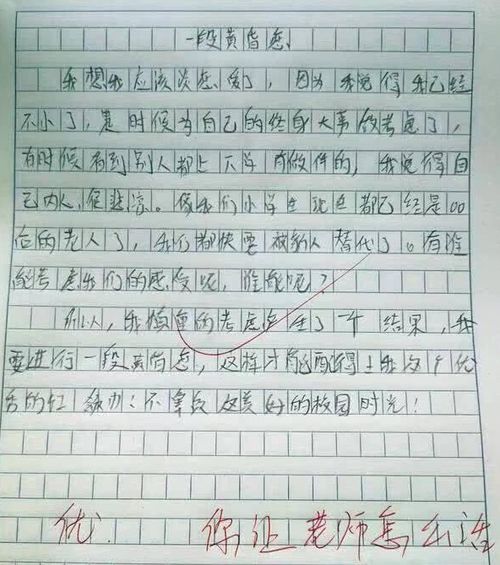 一段黄昏恋
我想我应该谈恋爱了，因为我觉得我已经
不小了，是时候为自己的终身大事做考虑了，
有时候看到别人都上下学有做伴的，我觉得自
己内人很悲凉。像我们小学生现在都已经是00
后的老人了，我们都快要被别人替代了。有谁
能考虑我们的感受呢，谁能呢？
所以，我慎重的考虑产生了一个结果，我
要进行一段黄昏恋，这样才能配得上我这个优
秀的红领巾！不辜负这美好的校园时光！
优
你让老师怎么活